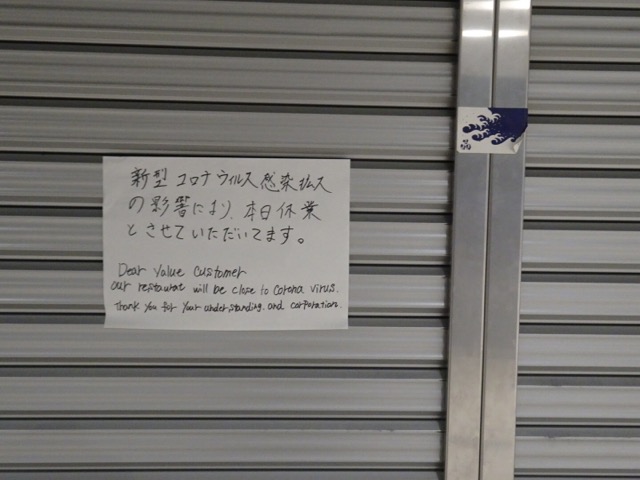 新型コロナウィルス感染拡大
の影響により、本日休業
とさせていただいてます。
Dear Value Customer
our restaurat will be close to Corona virus.
Thank you for your understanding. and corporation.